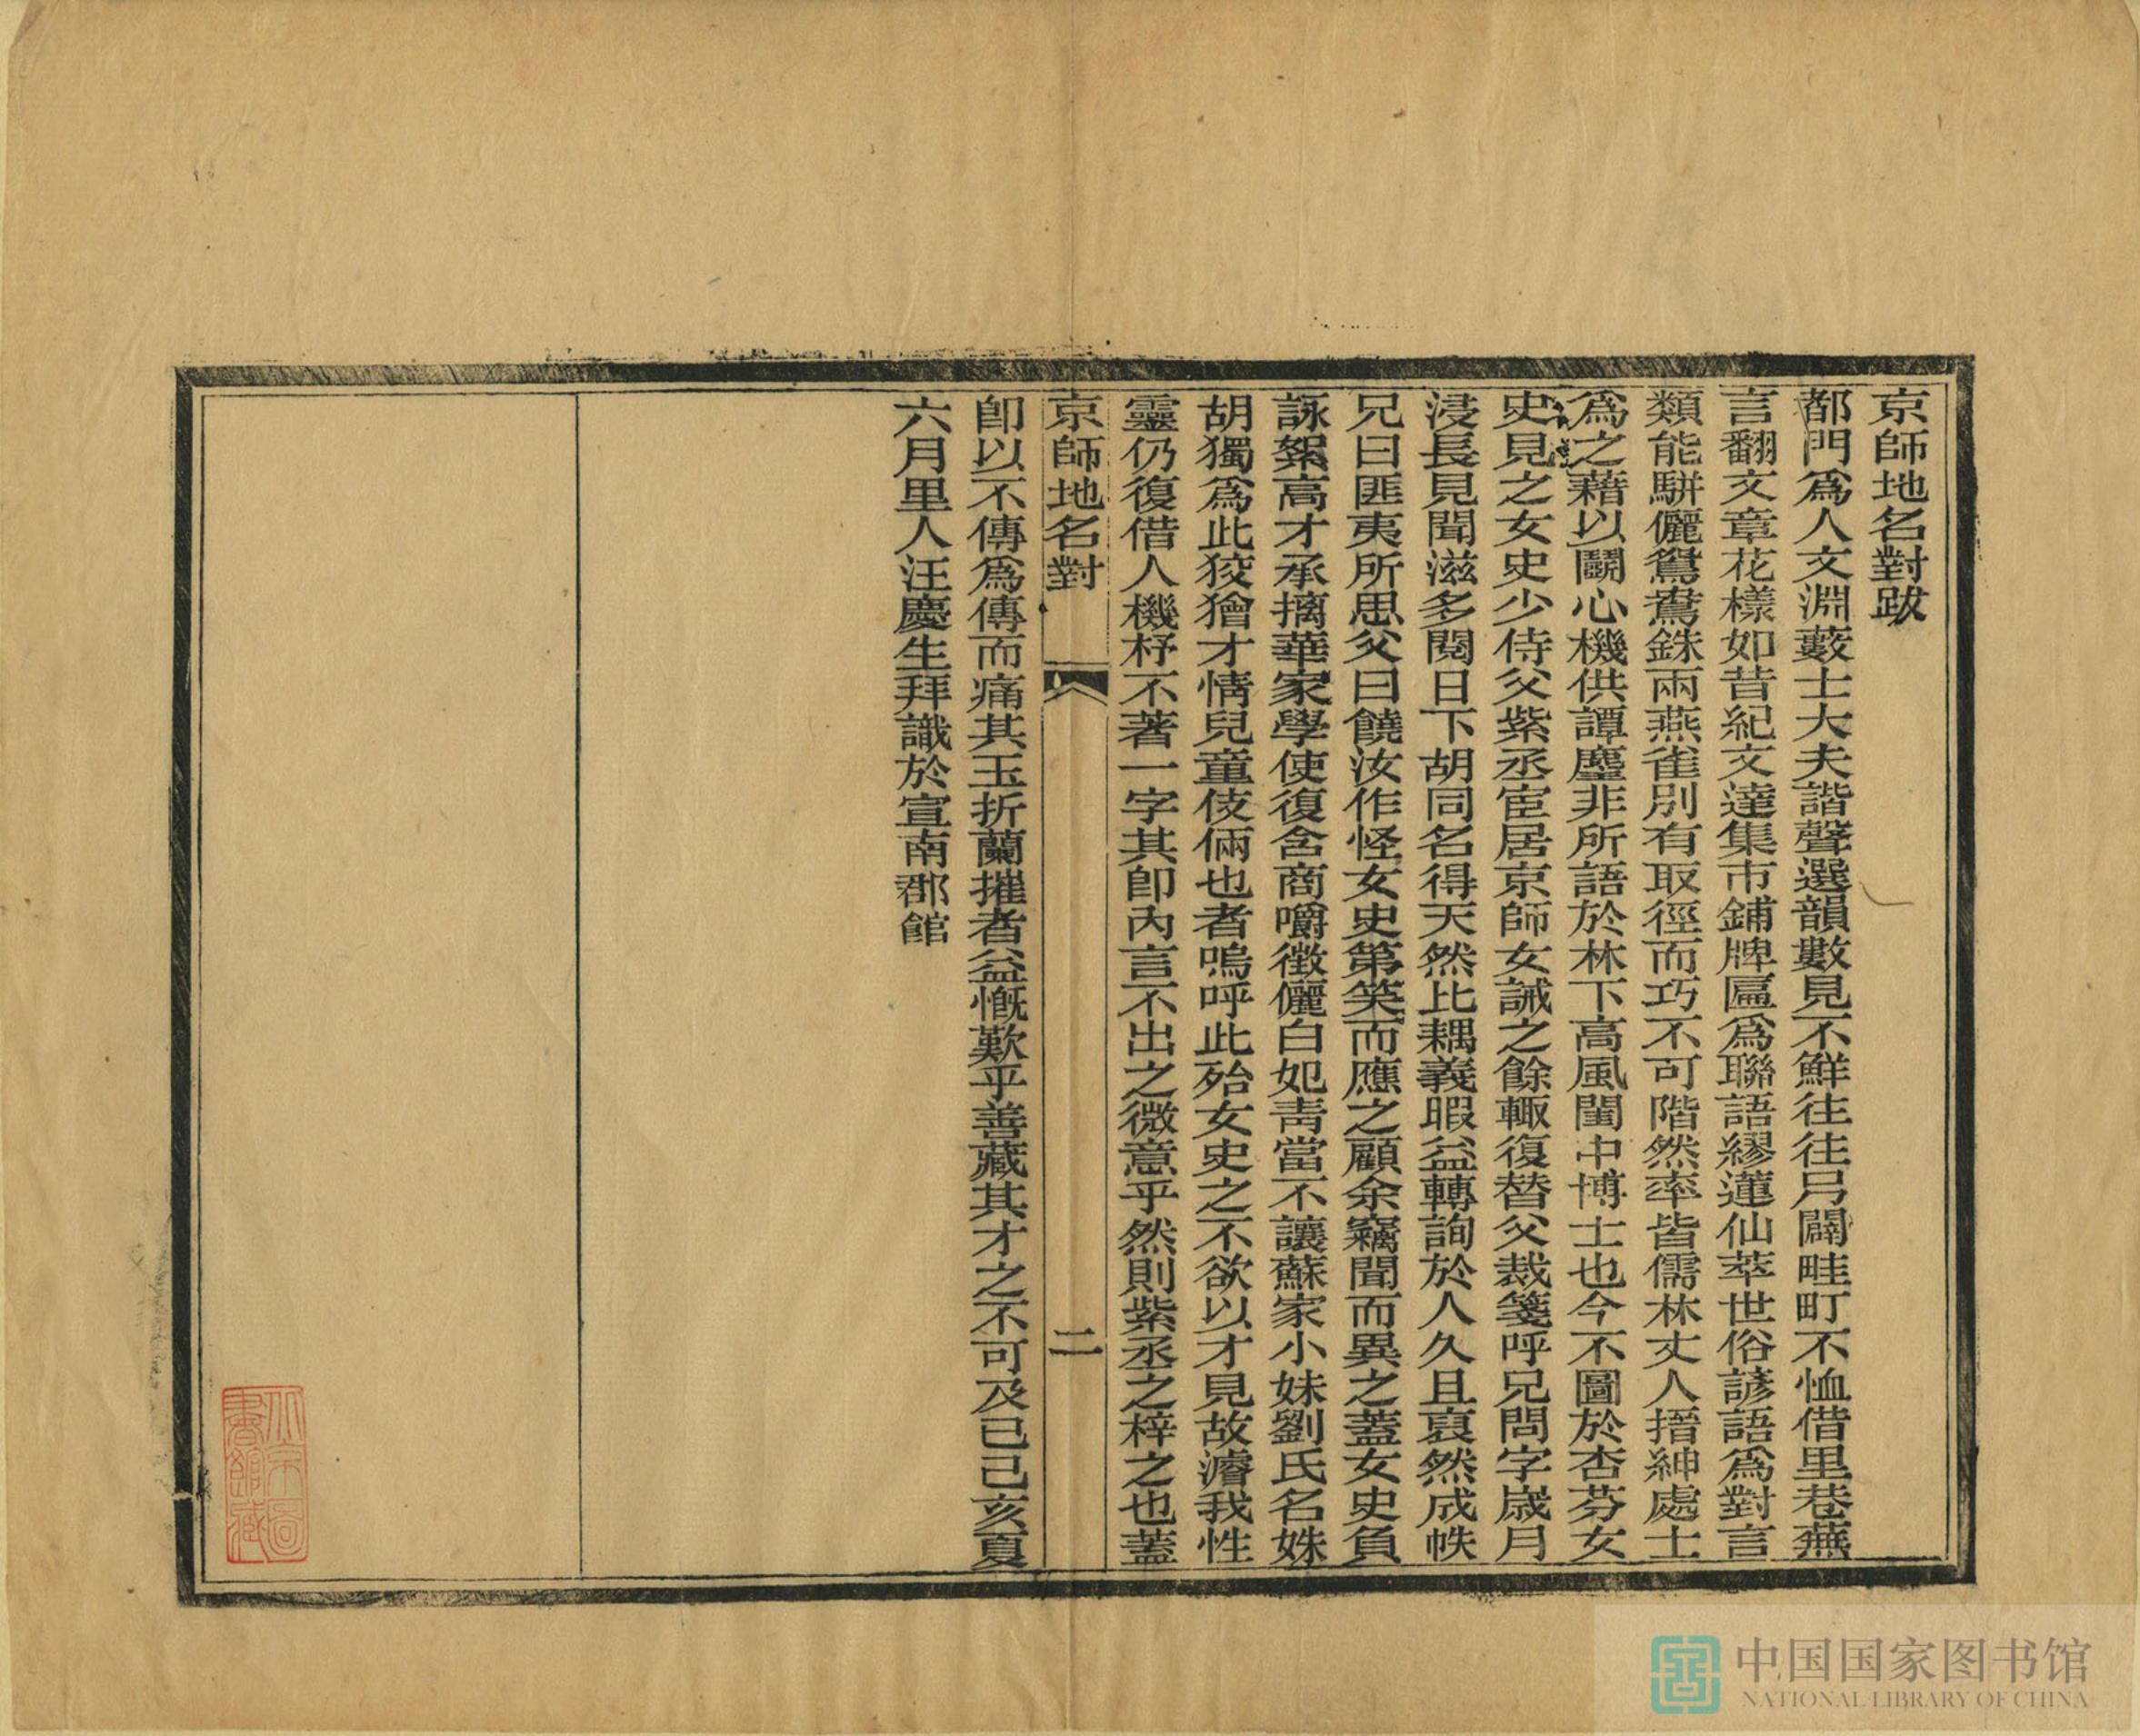 京師地名對跋
都門爲人文淵藪士大夫諧聲選韻數見不鮮往往另闢畦町不恤借里巷蕪
言翻文章花樣如昔紀文達集市鋪牌匾爲聯語繆蓮仙萃世俗諺語爲對言
類能駢儷鴛鴦銖兩燕雀別有取徑而巧不可階然率皆儒林丈人搢紳處士
爲之藉以鬭心機供譚麈非所語於林下高風閨中博士也今不圖於杏芬女
史見之女史少侍父紫丞宦居京師女誡之餘輒復替父裁箋呼兄問字歲月
浸長見聞滋多閱日下胡同名得天然比耦義暇益轉詢於人久且裒然成帙
兄曰匪夷所思父曰饒汝作怪女史第笑而應之顧余竊聞而異之蓋女史負
詠絮高才承摛華家學使復含商嚼徵儷白妃靑當不讓蘇家小妹劉氏名姝
胡獨爲此狡獪才情兒童伎倆也者嗚呼此殆女史之不欲以才見故濬我性
靈仍復借人機杼不著一字其卽內言不出之微意乎然則紫丞之梓之也蓋
京師地名對
二
卽以不傳爲傳而痛其玉折蘭摧者益慨歎乎善藏其才之不可及已己亥夏
六月里人汪慶生拜識於宣南郡館
北京圖
書館藏
中国国家图书馆
NATIONAL LIBRARY OF CHINA